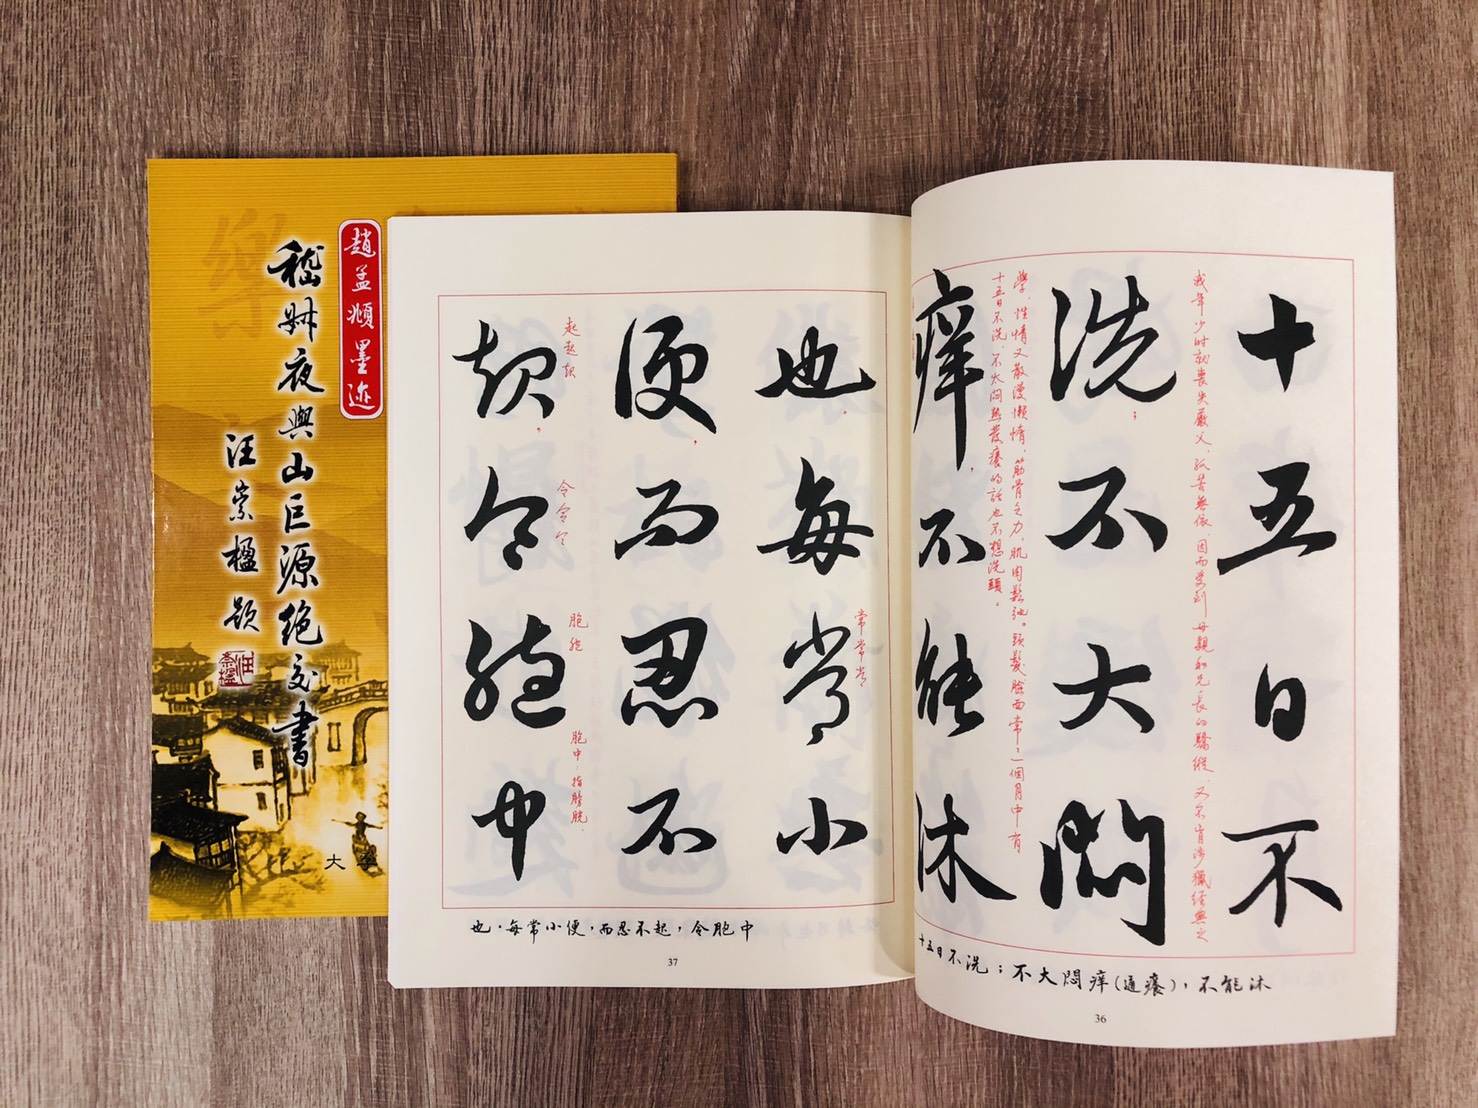 趙孟頫墨迹
嵇叔夜與山巨源絕交書
汪崇楹題
大
十五日不
我年少时就喪失嚴父，孤苦無依，因而受到母親和兄長的驕縱，又不肯涉獵經典之
洗；不大悶
學，性情又散漫懶惰，筋骨乏力，肌肉鬆弛。頭髮臉面常一個月中有
十五日不洗，不太悶熱發癢的話也不想洗頭。
痒，不能沐
十五日不洗；不大悶痒(通癢)，不能沐
36
也。每常小
常常常
便，而忍不
起起起
令令令
胞胞
胞中：指膀胱．
起，令胞中
也．每常小便，而忍不起，令胞中
37